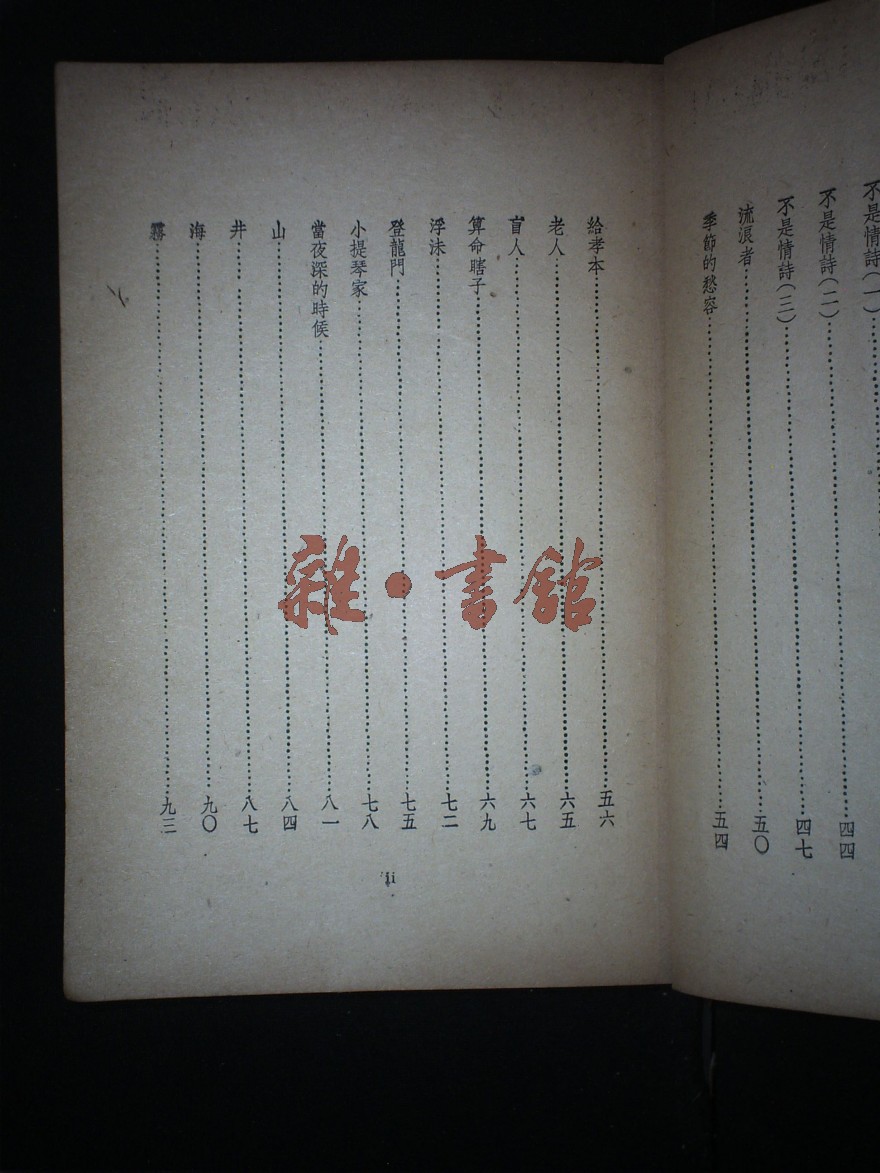 不是情詩(一)
不是情詩(二)……四四
不是情詩(三)……四七
流浪者……五〇
季節的愁容……五四
給孝本……五六
老人……六五
盲人……六七
算命瞎子……六九
浮沫……七二
登龍門……七五
小提琴家……七八
當夜深的時候……八一
山……八四
井……八七
海……九〇
霧……九三
ii
雜·書館